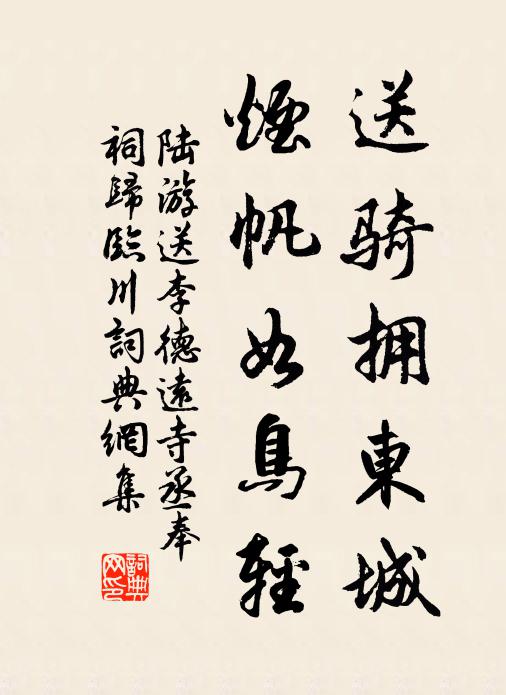 送骑拥東城
煙帆如鳥輕
陆游送李德遠寺丞奉
祠歸臨川詞典網集
詞典网印